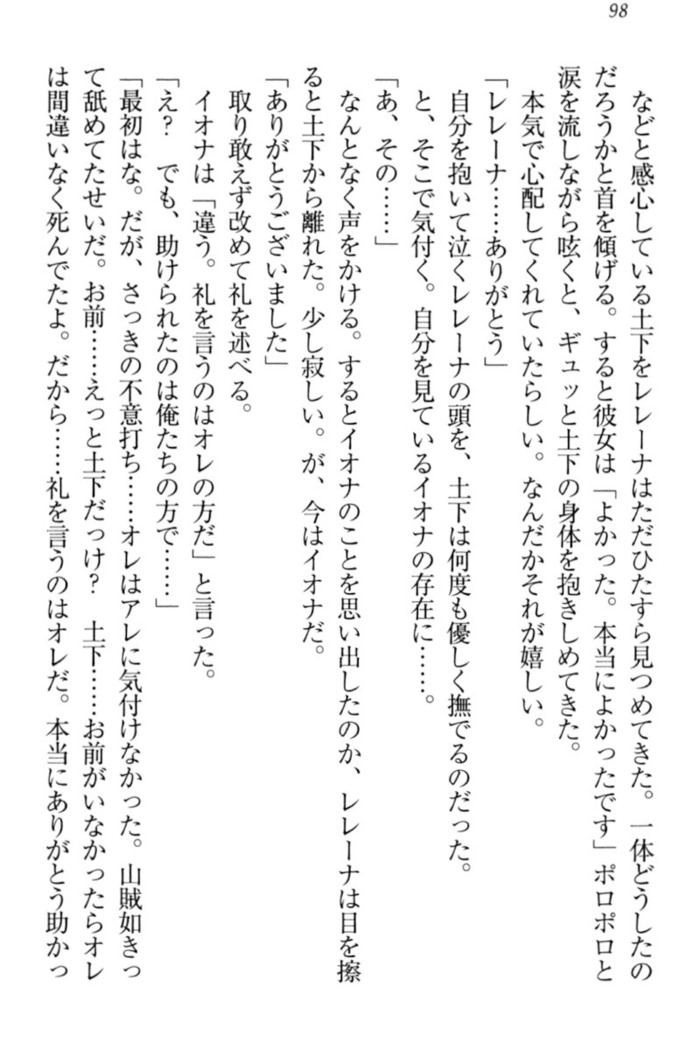 98
などと感心している土下をレレーナはただひたすら見つめてきた。一体どうしたの
だろうかと首を傾げる。すると彼女は「よかった。本当によかったです」ポロポロと
涙を流しながら呟くと、ギュッと土下の身体を抱きしめてきた。
本気で心配してくれていたらしい。なんだかそれが嬉しい。
「レレーナ……ありがとう」
自分を抱いて泣くレレーナの頭を、土下は何度も優しく撫でるのだった。
と、そこで気付く。自分を見ているイオナの存在に……。
「あ、その……」
なんとなく声をかける。するとイオナのことを思い出したのか、レレーナは目を擦
ると土下から離れた。少し寂しい。が、今はイオナだ。
「ありがとうございました」
取り敢えず改めて礼を述べる。
イオナは「違う。礼を言うのはオレの方だ」と言った。
「え?　でも、助けられたのは俺たちの方で……」
「最初はな。だが、さっきの不意打ち……オレはアレに気付けなかった。山賊如きっ
て舐めてたせいだ。お前……えっと土下だっけ?　土下……お前がいなかったらオレ
は間違いなく死んでたよ。だから……礼を言うのはオレだ。本当にありがとう助かっ